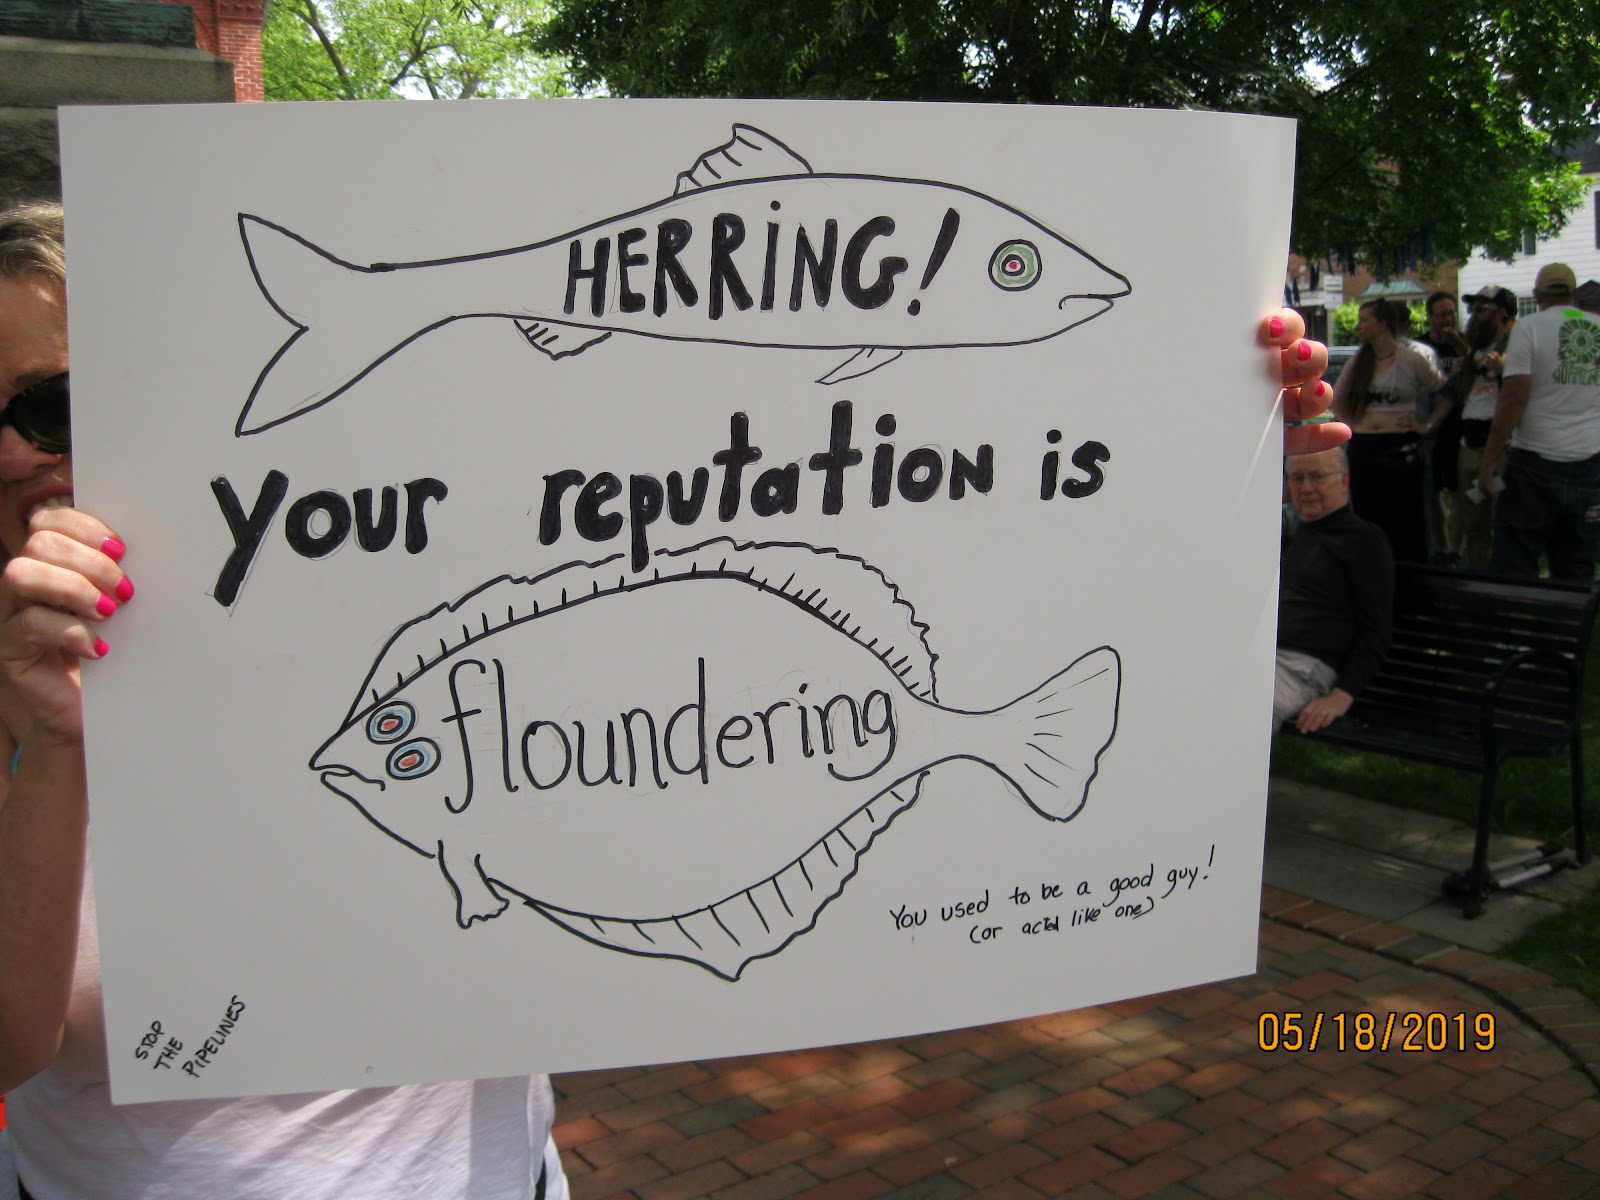 HERRING!
your reputation is
floundering
You used to be a good guy!
(or acted like one)
STOP
THE
PIPELINES
05/18/2019